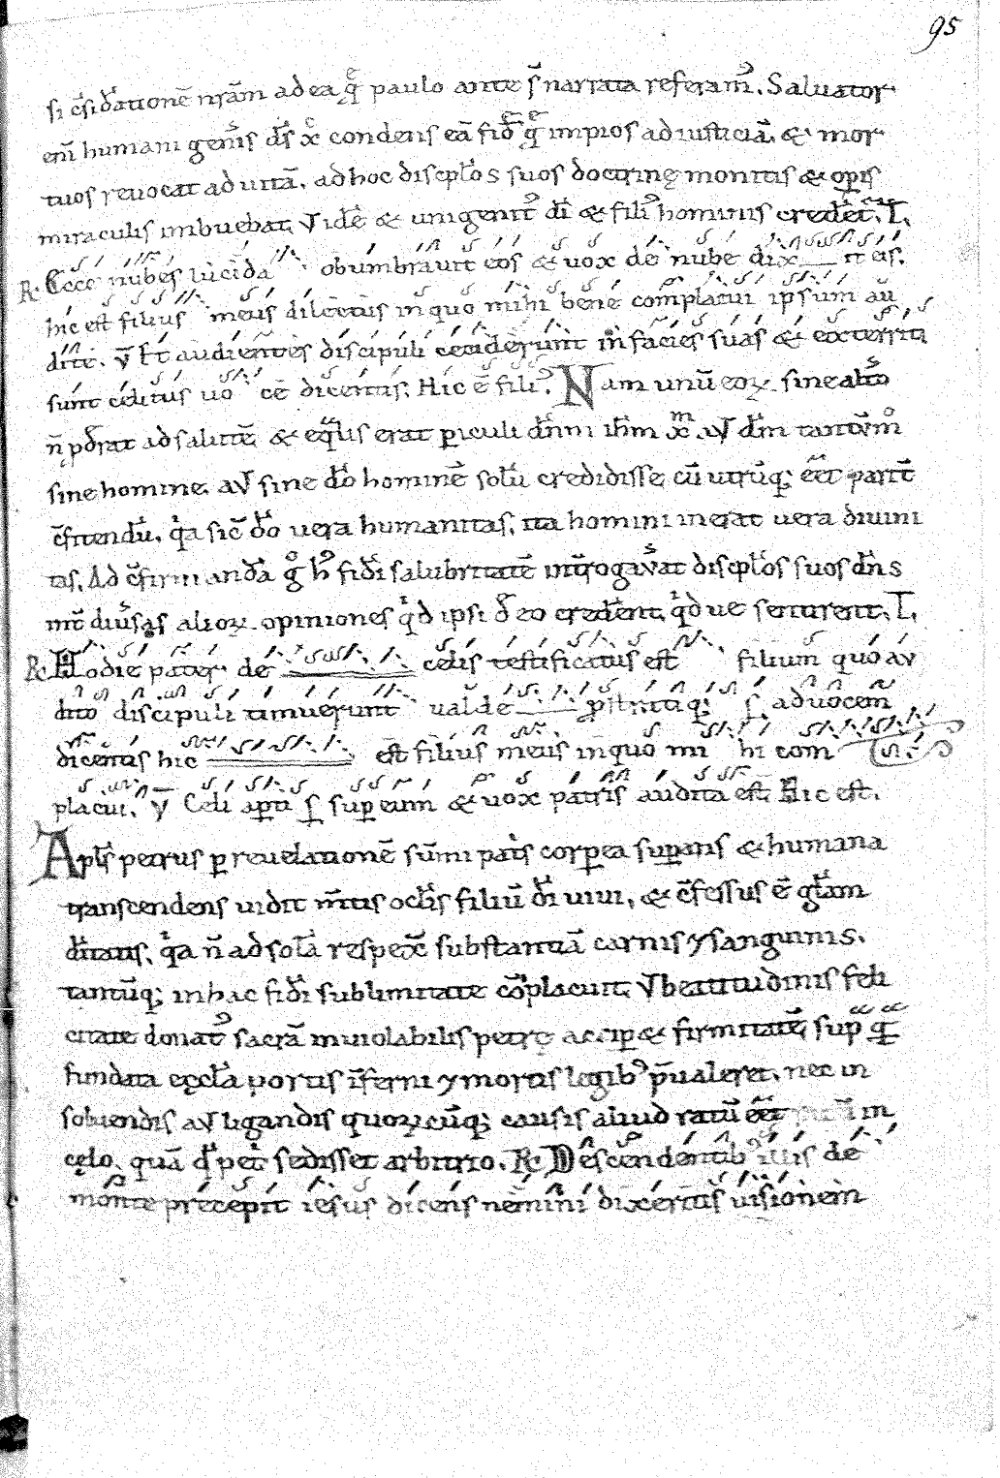 95
si c̄sid̄atione nr̄am ad ea q̄ paulo ante s̄ narrata referam᷒. Saluator
eni᷒ humani gen̄is d̄s xc̄ condens eā fid̄ q̄ impios ad iusticiā & mor
tuos reuocat ad uitā, ad hoc discpl̄os suos doctrinę monitis & op̄is
miraculis imbuebat, Vid̄e & unigenit᷒ di᷒ & fili᷒ hominis cred̄et. T,
R. Ecce nubes lucida obumbrauit eos & uox de nube dix it eis,
hic est filius meus dilectus in quo mihi bene complacui ipsum au
dite. V̄ Et audientes discipuli ceciderunt in facies suas & exterriti
sunt celitus uo cē dicentis, Hic ē fili᷒. Nam unū eoꝝ sine altō
n̄ pd̄rat ad salutē & eq̄lis erat ꝑiculi dn̄m ih̄m xm̄ aut dm̄ tantum̊
sine homine. aut sine dō hominē solū credidisse cū utrūq; eēt parit̄
c̄fitendū, q̄a sic̄ dō uera humanitas, ita homini inerat uera diuini
tas, Ad c̄firmandā g̊ h᷒ fidi salubritatē int̄rogauat discpl̄os suos dn̄s
int̄ diūsas alioꝝ opiniones q̄d ipsi d̄ eo cred̄ent, q̄d ue sentirent, T,
R. Hodie pater de celis testificatus est filium quo au
dito discipuli timuerunt ualde pstratiq; s̄ ad uocem
dicentis hic est filius meus in quo mi hi com
placui, V̄ Celi aꝑti s̄ super eum & uox patris audita est. Hic est.
Apl̄s petrus ꝑ reuelationē sum̄i pat̄s corꝑea suꝑans & humana
transcendens uidit m̄tis ocl̄is filiū di᷒ uiui, & c̄fessus ē gl̄am
d̄itatis, q̄a n̄ ad solā respex̄ substantiā carnis ⁊ sanguinis,
tantūq; in hac fid̄i sublimitate c̄oplacuit, Vt beatitudinis feli
citate donat᷒ sacrā inuiolabilis petrę acciꝑ& firmitatē, sup̄ q̄
fundata ęccl̄a portis īferni ⁊ mortis legib᷒ p̄ualeret, nec in
soluendis aut ligandis quoꝝcūq; causis aliud ratū eēt in
cęlo. quā qd̄ pet̄ sedisset arbitrio. R. Descendentib᷒ illis de
monte precepit iesus dicens nemini dixeritis uisionem